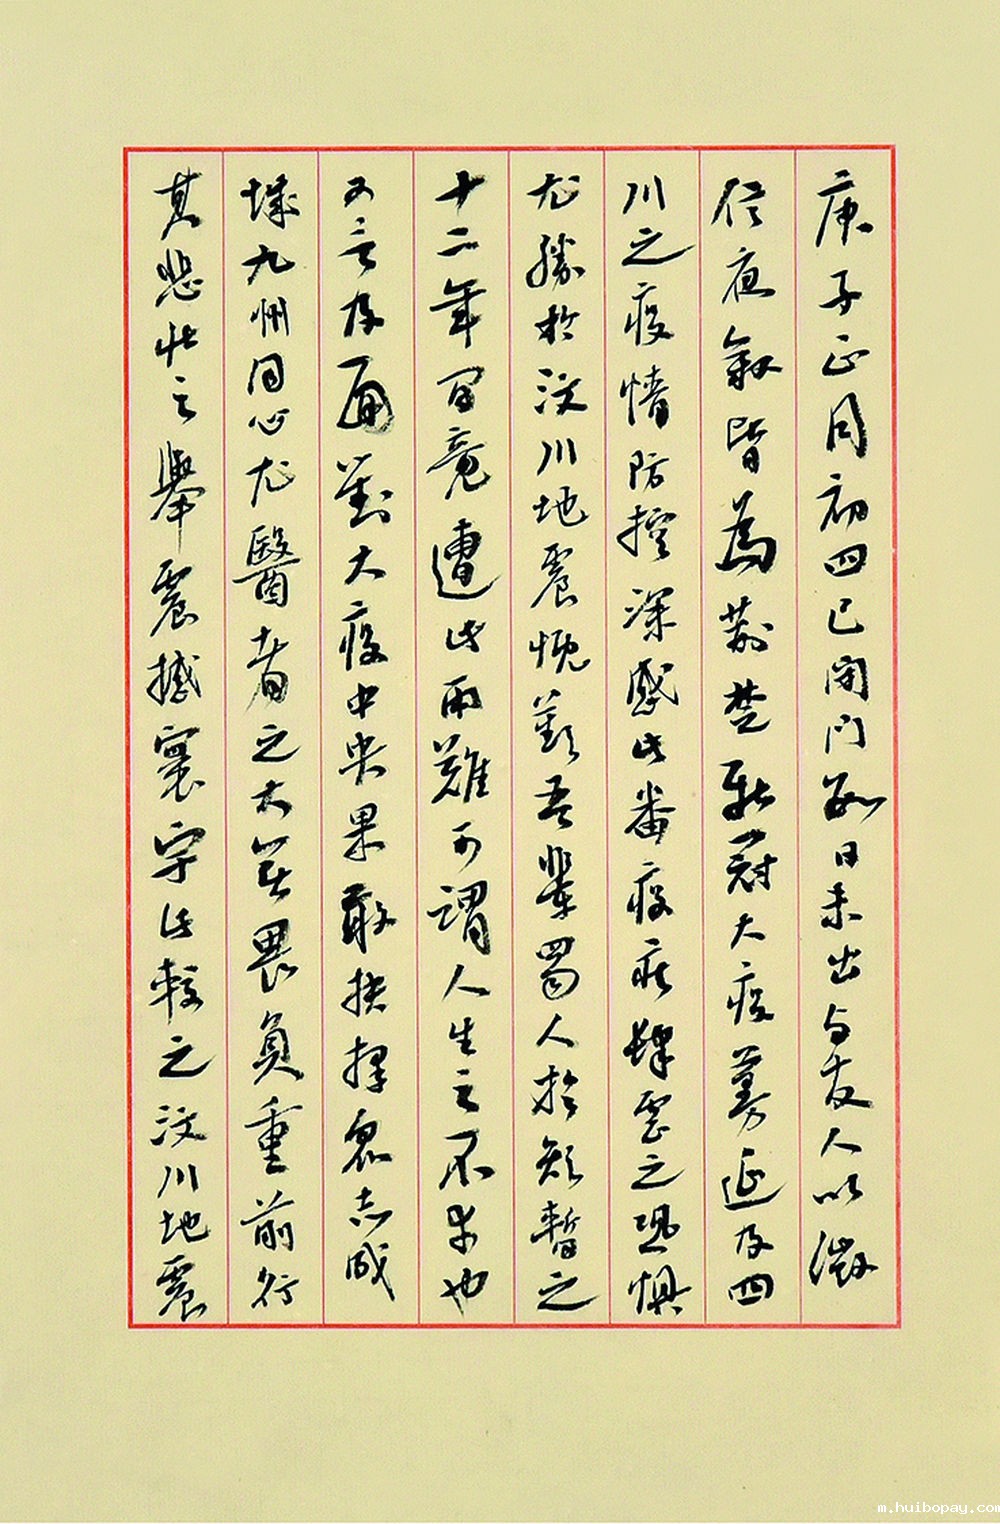 庚子正月初四已閉門數日未出与友人以微
信夜叙皆為荆楚新冠大疫蔓延及四
川之疫情防控深感此番疫症肆虐之恐惧
尤勝於汶川地震慨歎吾輩蜀人於短暫之
十二年间竟遭此兩難可謂人生之不幸也
又言及面對大疫中央果敢抉擇眾志成
城九州同心尤醫者之大無畏負重前行
其悲壮之舉震撼寰宇此較之汶川地震
m.huibopay.com